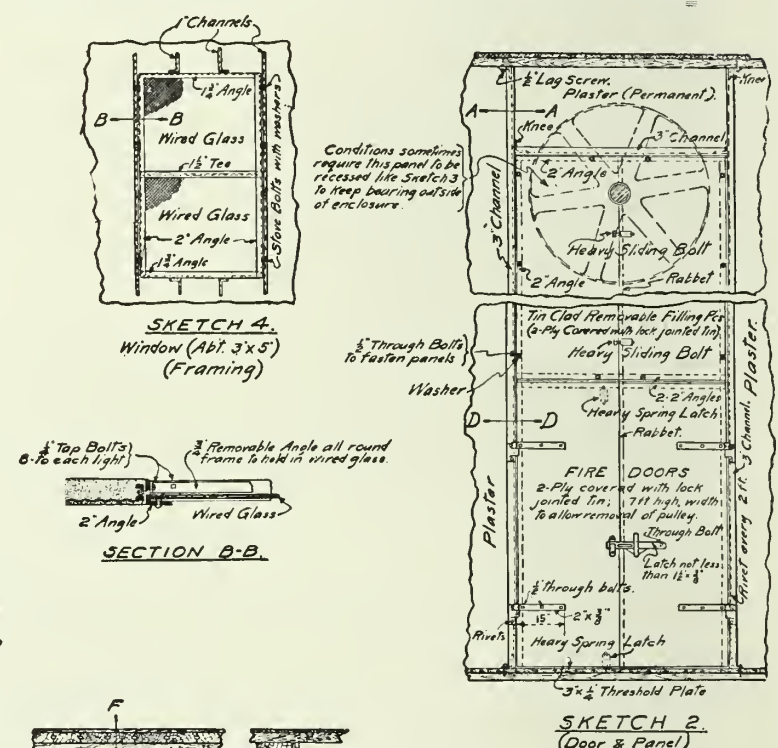 1" Channels
1 3/4" Angle
B B
Wired Glass
1 1/2" Tee
Wired Glass
2" Angle
1 3/4" Angle
Stove Bolts with washers
SKETCH 4.
Window (Abt. 3'x5')
(Framing)
1/4" Tap Bolts
8-To each light
3/4" Removable Angle all round
frame to hold in wired glass.
2" Angle
Wired Glass
SECTION B-B.
F
1/2" Lag Screw.
Plaster (Permanent).
Knee
A A
Knee
3" Channel
Conditions sometimes
require this panel to be
recessed like Sketch 3
to keep bearing outside
of enclosure.
2" Angle
3" Channel
Heavy Sliding Bolt
2" Angle
Rabbet
Tin Clad Removable Filling Pcs
(2-Ply Covered with lock jointed tin)
1/2" Through Bolts
to fasten panels
Heavy Sliding Bolt
Washer
2-2" Angles
Heavy Spring Latch
D D
Rabbet.
FIRE DOORS
2-Ply covered with lock
jointed Tin; 7ft high, width
to allow removal of pulley.
Plaster
Through Bolt
Latch not less
than
1/2" through bolts.
15"
Rivets
Heavy Spring Latch
3"x1/4" Threshold Plate
Rivet every 2 ft. 3" Channel. Plaster.
SKETCH 2.
(Door & Panel)